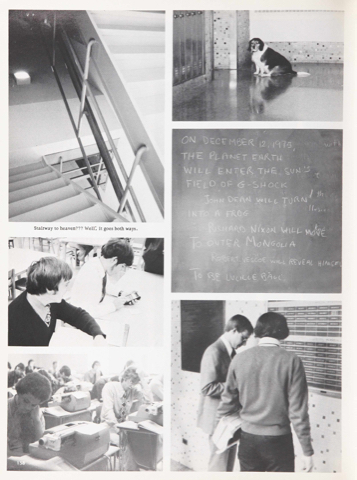 Stairway to heaven??? Well, it goes both ways.
ON DECEMBER 12, 1973,
THE PLANET EARTH
WILL ENTER THE SUN'S
FIELD OF G-SHOCK
JOHN DEAN WILL TURN
INTO A FROG
RICHARD NIXON WILL MOVE
TO ENTER MONGOLIA
WILL REVEAL HIMSELF
TO BE UNCLE BILL.